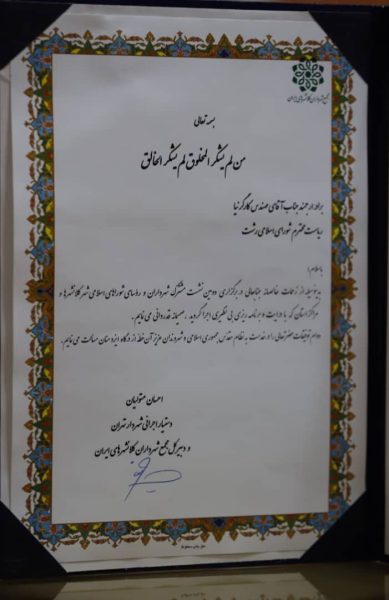 مجمع شهرداران کلانشهرهای ایران
بسمه تعالی
من لم یشکر المخلوق لم یشکر الخالق
برادر ارجمند جناب آقای مهندس کارگرنیا
ریاست محترم شورای اسلامی رشت
با سلام؛
بدینوسیله از زحمات خالصانه جنابعالی در برگزاری دومین نشست مشترک شهرداران و روسای شوراهای اسلامی شهر کلانشهرها و
مراکز استان که با درایت و برنامه ریزی بی نظیری اجرا گردید، صمیمانه قدردانی می نمایم.
دوام توفیقات حضرتعالی را در خدمت به نظام مقدس جمهوری اسلامی و شهروندان عزیز آن خطه از درگاه ایزد منان مسالت می نمایم.
احسان متولیان
دستیار اجرائی شهردار تهران
و دبیر کل مجمع شهرداران کلانشهرهای ایران